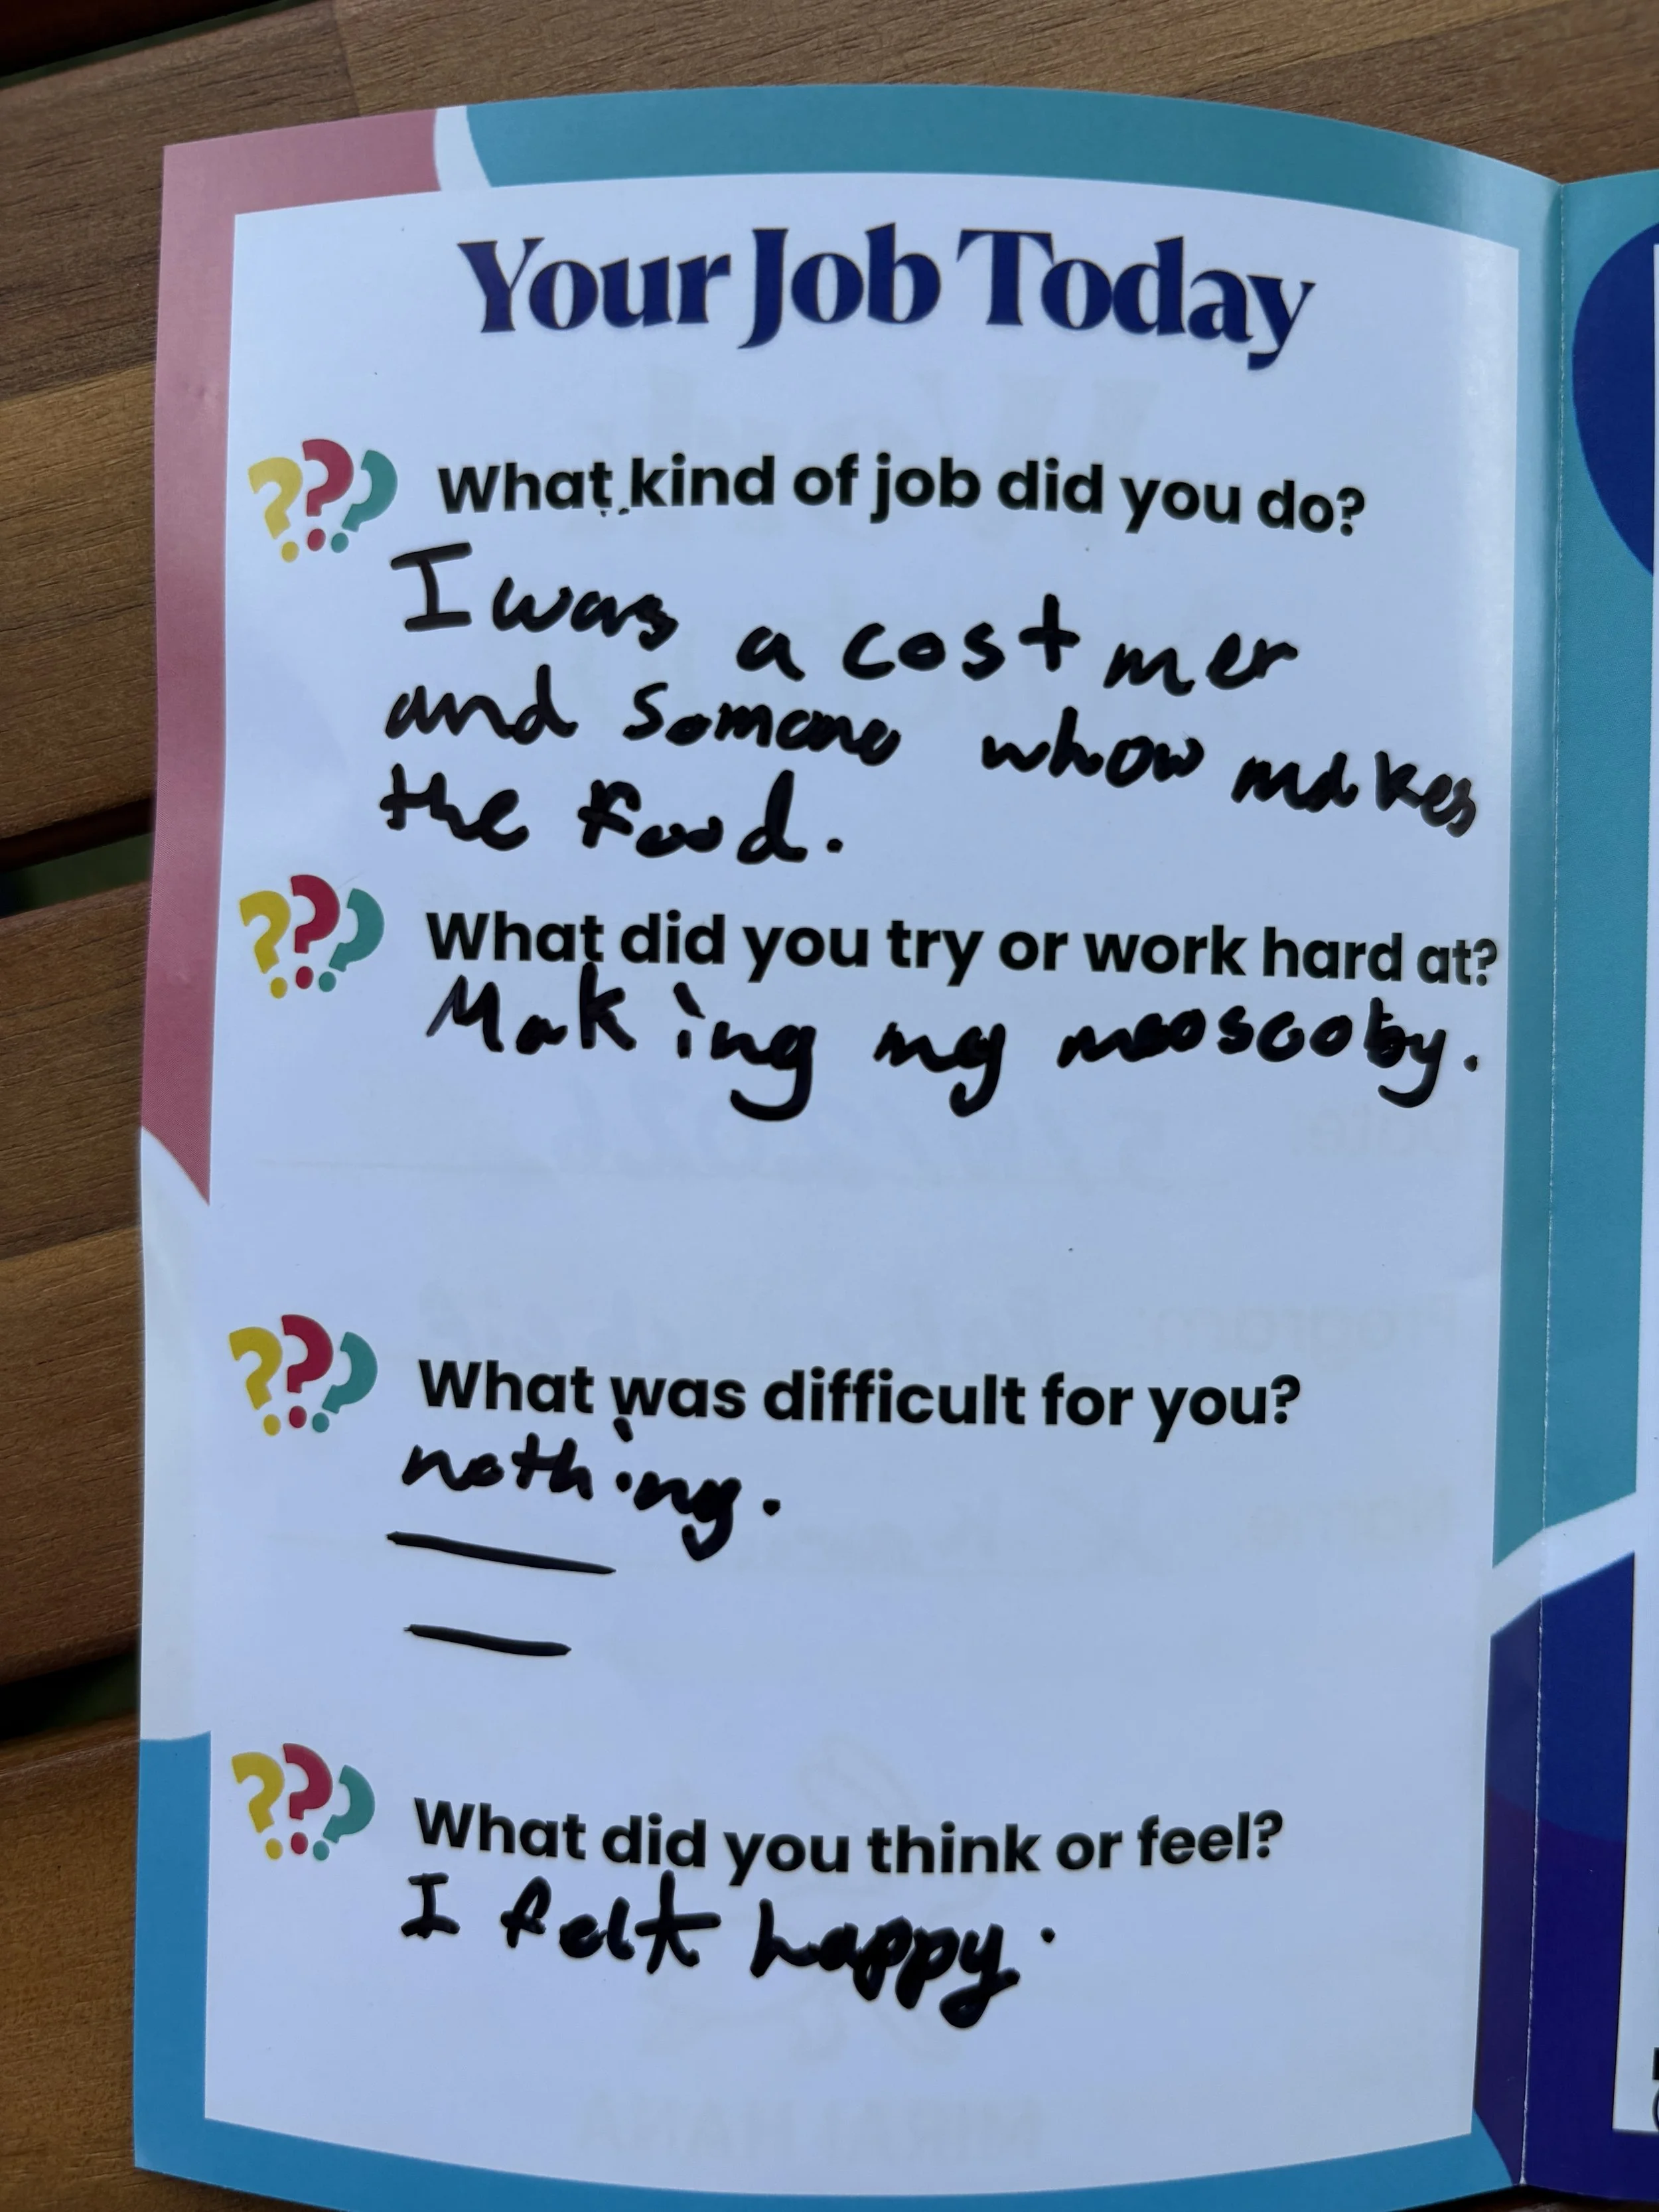 Your Job Today
What kind of job did you do?
I was a costmer
and somone whow makes
the food.
What did you try or work hard at?
Making my mooscoby.
What was difficult for you?
nothing.
What did you think or feel?
I felt happy.